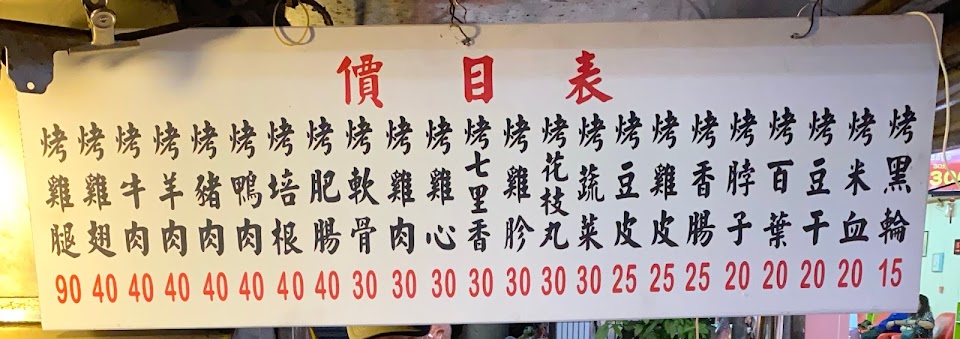 價目表
烤雞腿 90
烤雞翅 40
烤牛肉 40
烤羊肉 40
烤豬肉 40
烤鴨肉 40
烤培根 40
烤肥腸 40
烤軟骨 30
烤雞肉 30
烤雞心 30
烤七里香 30
烤雞胗 30
烤花枝丸 30
烤蔬菜 30
烤豆皮 25
烤雞皮 25
烤香腸 25
烤脖子 20
烤百葉 20
烤豆干 20
烤米血 20
烤黑輪 15